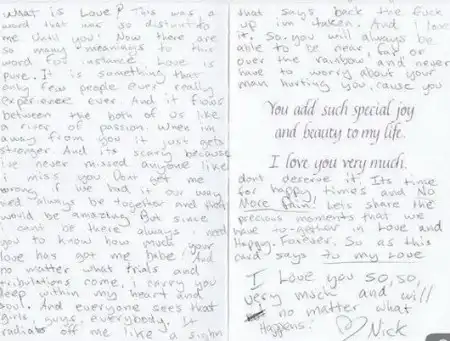 What is Love? This was a
word that was so distant to
me Until you! Now there are
so many meanings to this
word for instance Love is
pure. It is something that
only few people ever really
experience ever. And it flows
between the both of us like
a river of passion. When im
away from you it just gets
stronger And its scary because
ive never missed anyone like
i miss you Dont get me
wrong if we had it our way
wed always be together and that
would be amazing But since
i cant be there always i need
you to know how much your
love has got me babe! And
no matter what trials and
tribulations come, i carry you
deep within my heart and
soul. And everyone sees that
girls, guys, everybody. It
radiats off me like a sighn
that says back the fuck
up im taken. And I love
it. So you will always be
able to be near, far or
over the rainbow, and never
have to worry about your
man hurting you, cause you
You add such special joy
and beauty to my life.
I love you very much.
dont deserve it. Its time
for happy times and No
More Pain! Lets share the
precious moments that we
have to-gether in Love and
Happy. Forever. So as this
card says to my Love
I Love you so, so,
very much and will
no matter what
Happens! Nick